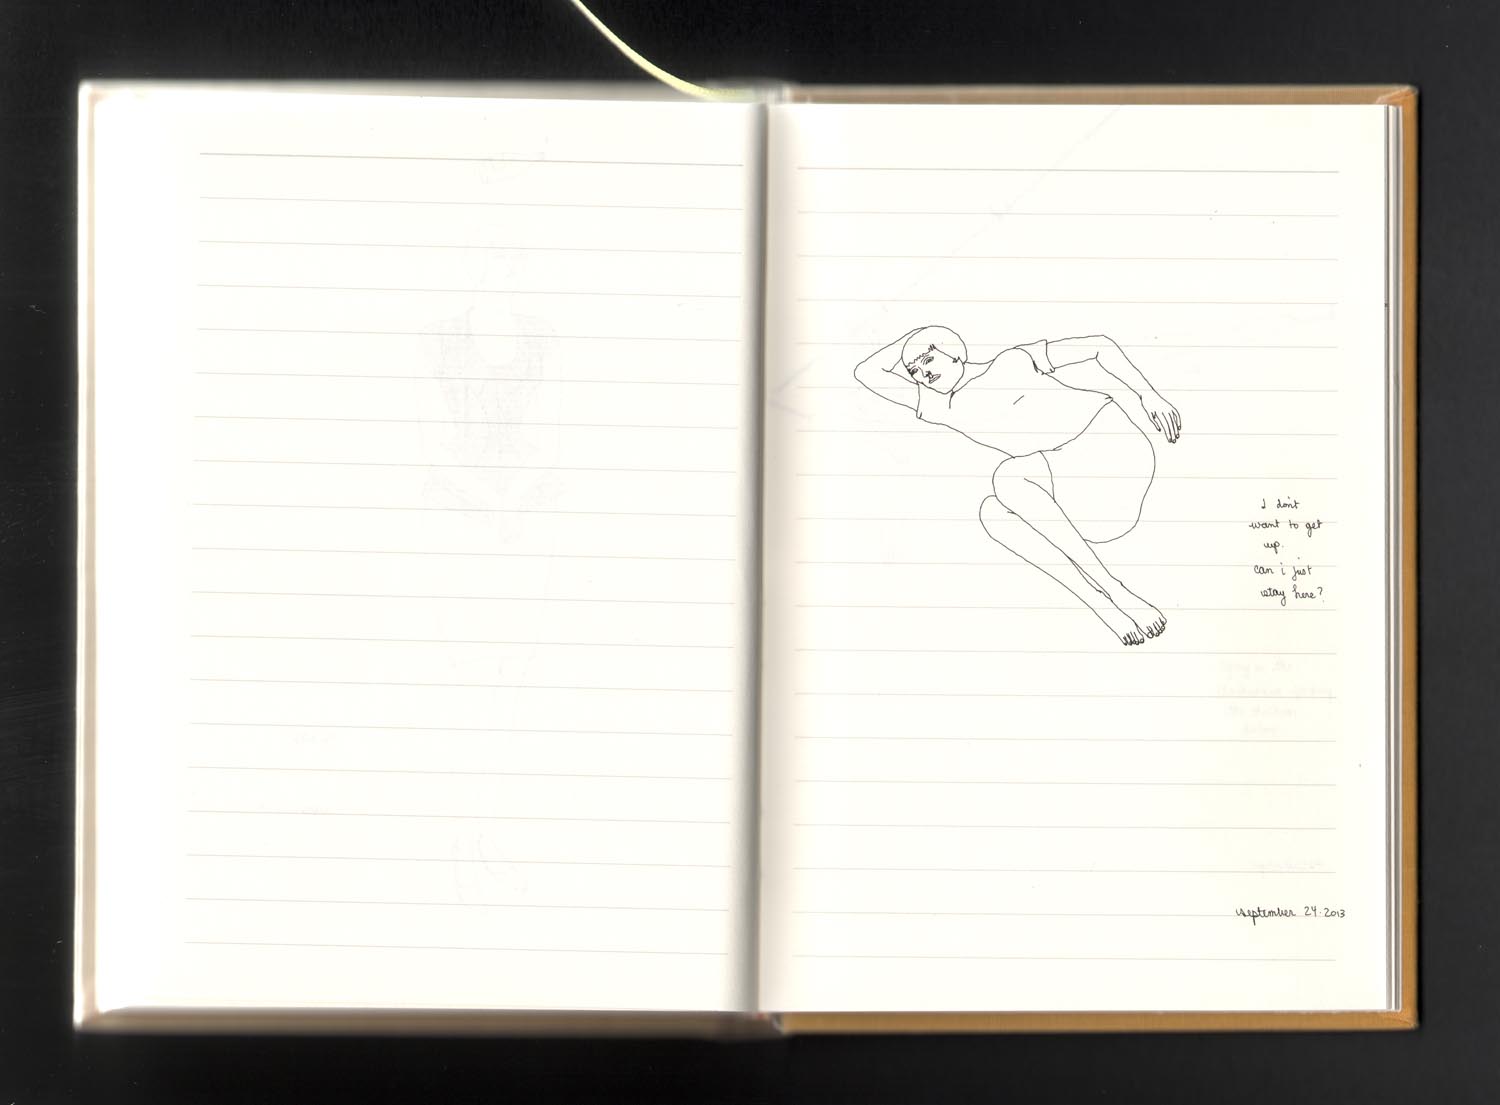 I don't
want to get
up.
can i just
stay here?
september 24.2013